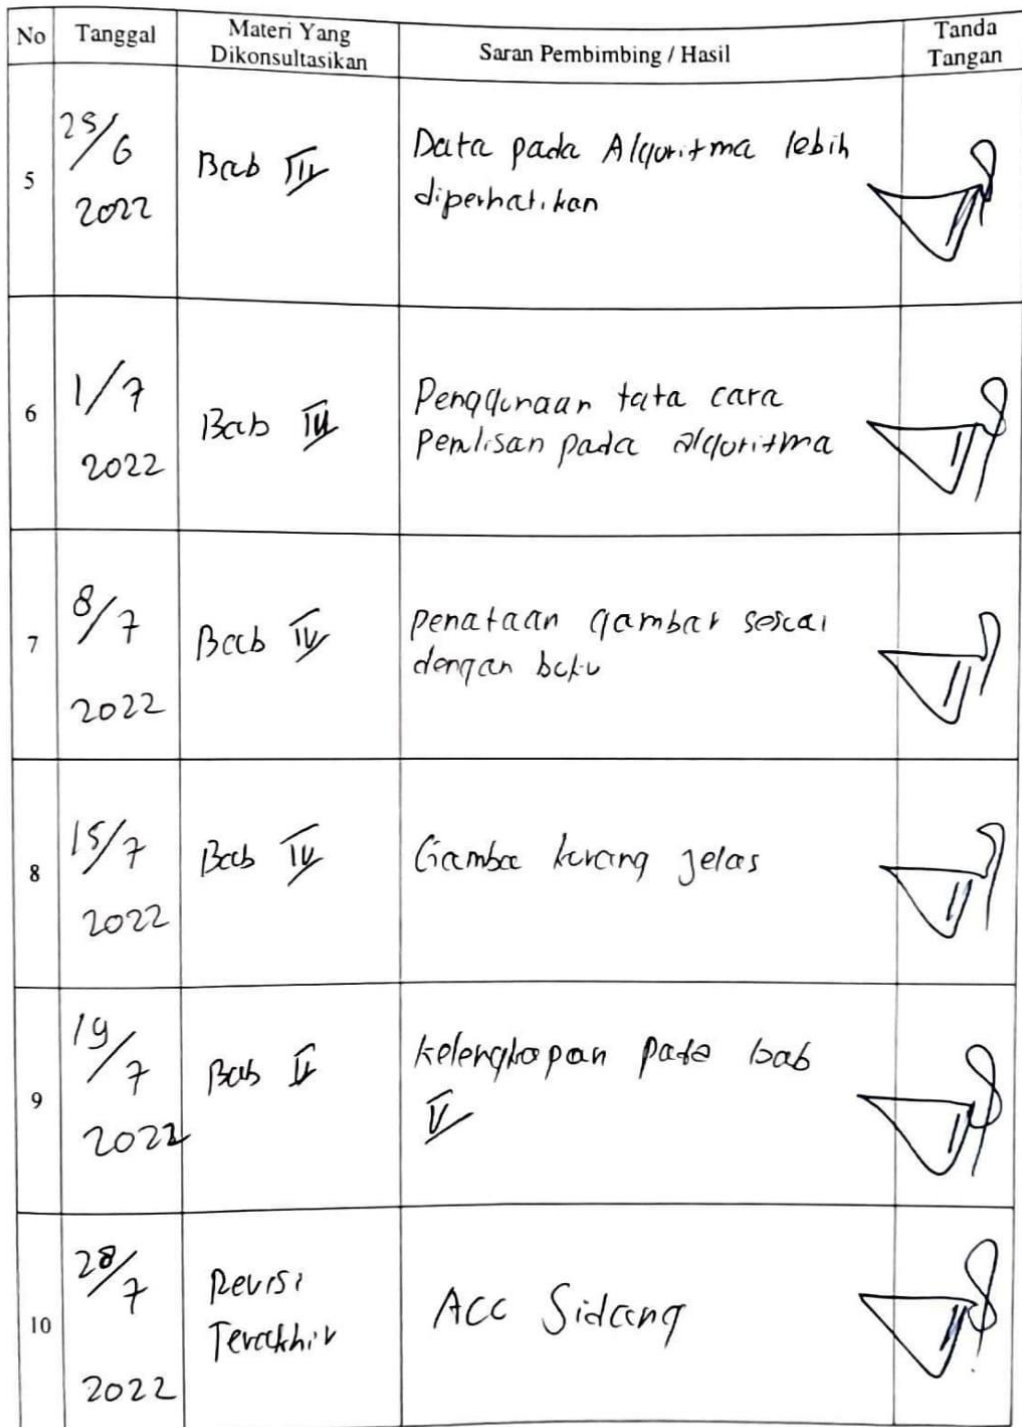 No Tanggal Materi Yang Dikonsultasikan Saran Pembimbing / Hasil Tanda Tangan
5
25/6
2022
Bab III
Data pada Algoritma lebih
diperhatikan
6
1/7
2022
Bab
Penggunaan tata cara
Penulisan pada algoritma
7
8/7
2022
Bab IV
penataan gambar sesuai
dengan buku
8
15/7
2022
Bab IV
Gamba kurang jelas
9
19/7
2022
Bab V
kelengkapan pada bab
V
10
28/7
2022
Revisi
Terakhir
ACC Sidang